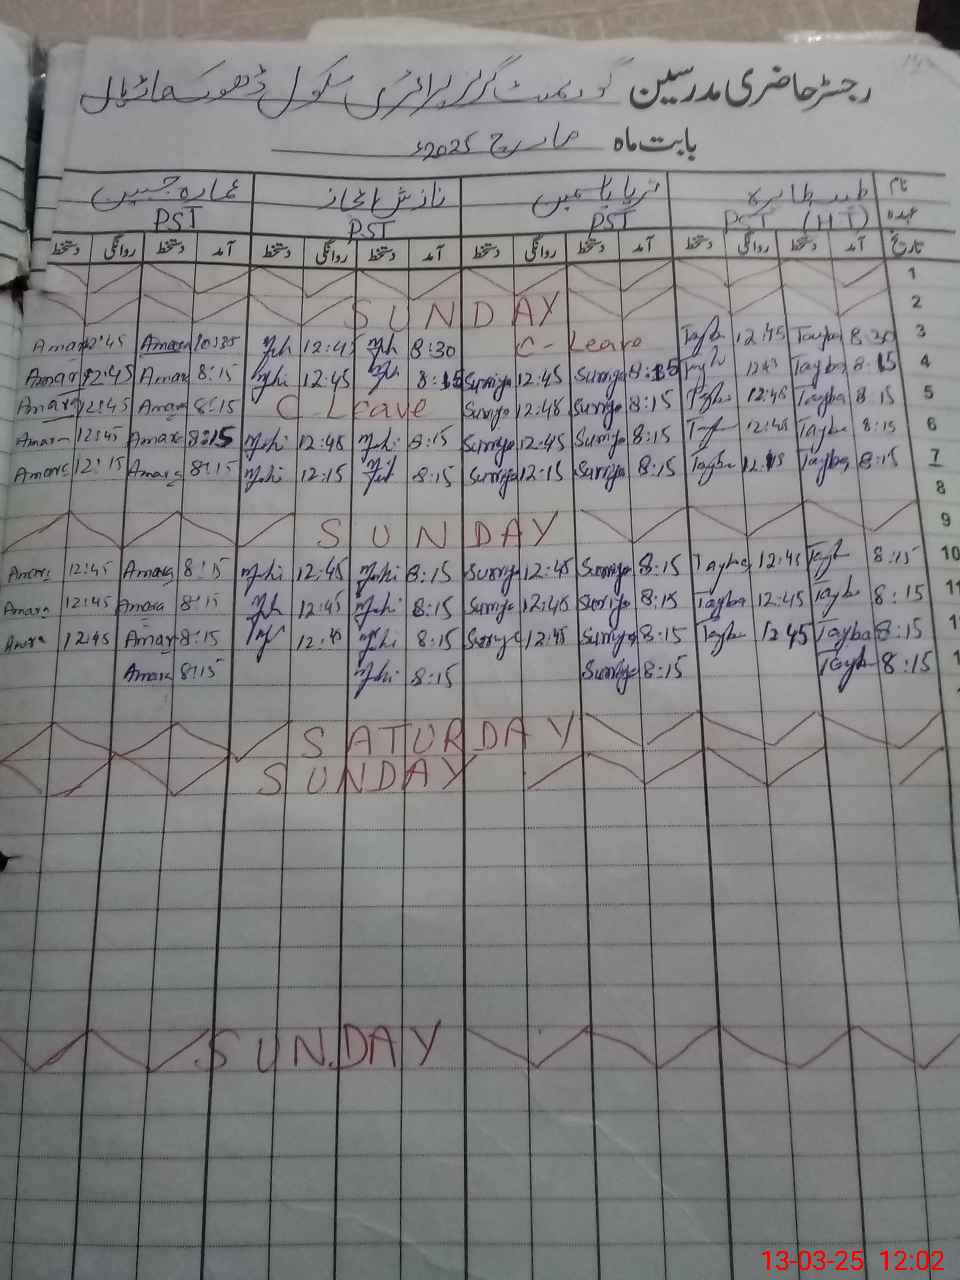 رجسٹر حاضری مدرسین گورنمنٹ گرلز پرائمری سکول ڈھوک
بابت ماہ مارچ 2025ء
نام طیبہ طاہرہ ثریا یاسمین نازش اعجاز عمارہ جبیں
عہدہ PST (HT) PST PST PST
تاریخ آمد دستخط روانگی دستخط آمد دستخط روانگی دستخط آمد دستخط روانگی دستخط آمد دستخط روانگی دستخط
1
SUNDAY 2
Amara 12:45 Amara 10:35 12:45 8:30 C-Leave Tayba 12:45 Tayba 8:30 3
Amara 12:45 Amara 8:15 12:45 8:15 Surriya 12:45 Surriya 8:15 Tayba 8:15 4
Amara 12:45 Amara 8:15 C Leave Surriya 12:45 Surriya 8:15 12:45 Tayba 8:15 5
Amara 12:45 Amara 8:15 12:45 8:15 Surriya 12:45 Surriya 8:15 12:45 Tayba 8:15 6
Amara 12:15 Amara 8:15 12:15 8:15 Surriya 12:15 Surriya 8:15 Tayba 12:15 Tayba 8:15 7
8
SUNDAY 9
Amara 12:45 Amara 8:15 12:45 8:15 Surriya 12:45 Surriya 8:15 Tayba 12:45 Tayba 8:15 10
Amara 12:45 Amara 8:15 12:45 8:15 Surriya 12:45 Surriya 8:15 Tayba 12:45 Tayba 8:15
Amara 12:45 Amara 8:15 12:45 8:15 Surriya 12:45 Surriya 8:15 Tayba 12:45 Tayba 8:15
Amara 8:15 8:15 Surriya 8:15 Tayba 8:15
SATURDAY
SUNDAY
SUNDAY
13-03-25 12:02